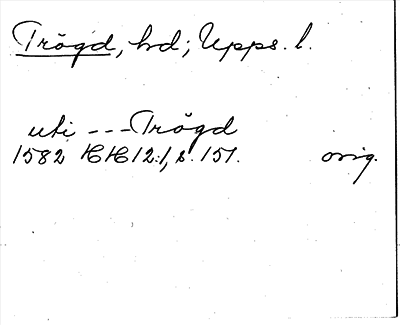 Trögd, hd; Upps. l.
uti --- Trögd
1582 HH 12:1, s. 151. orig.